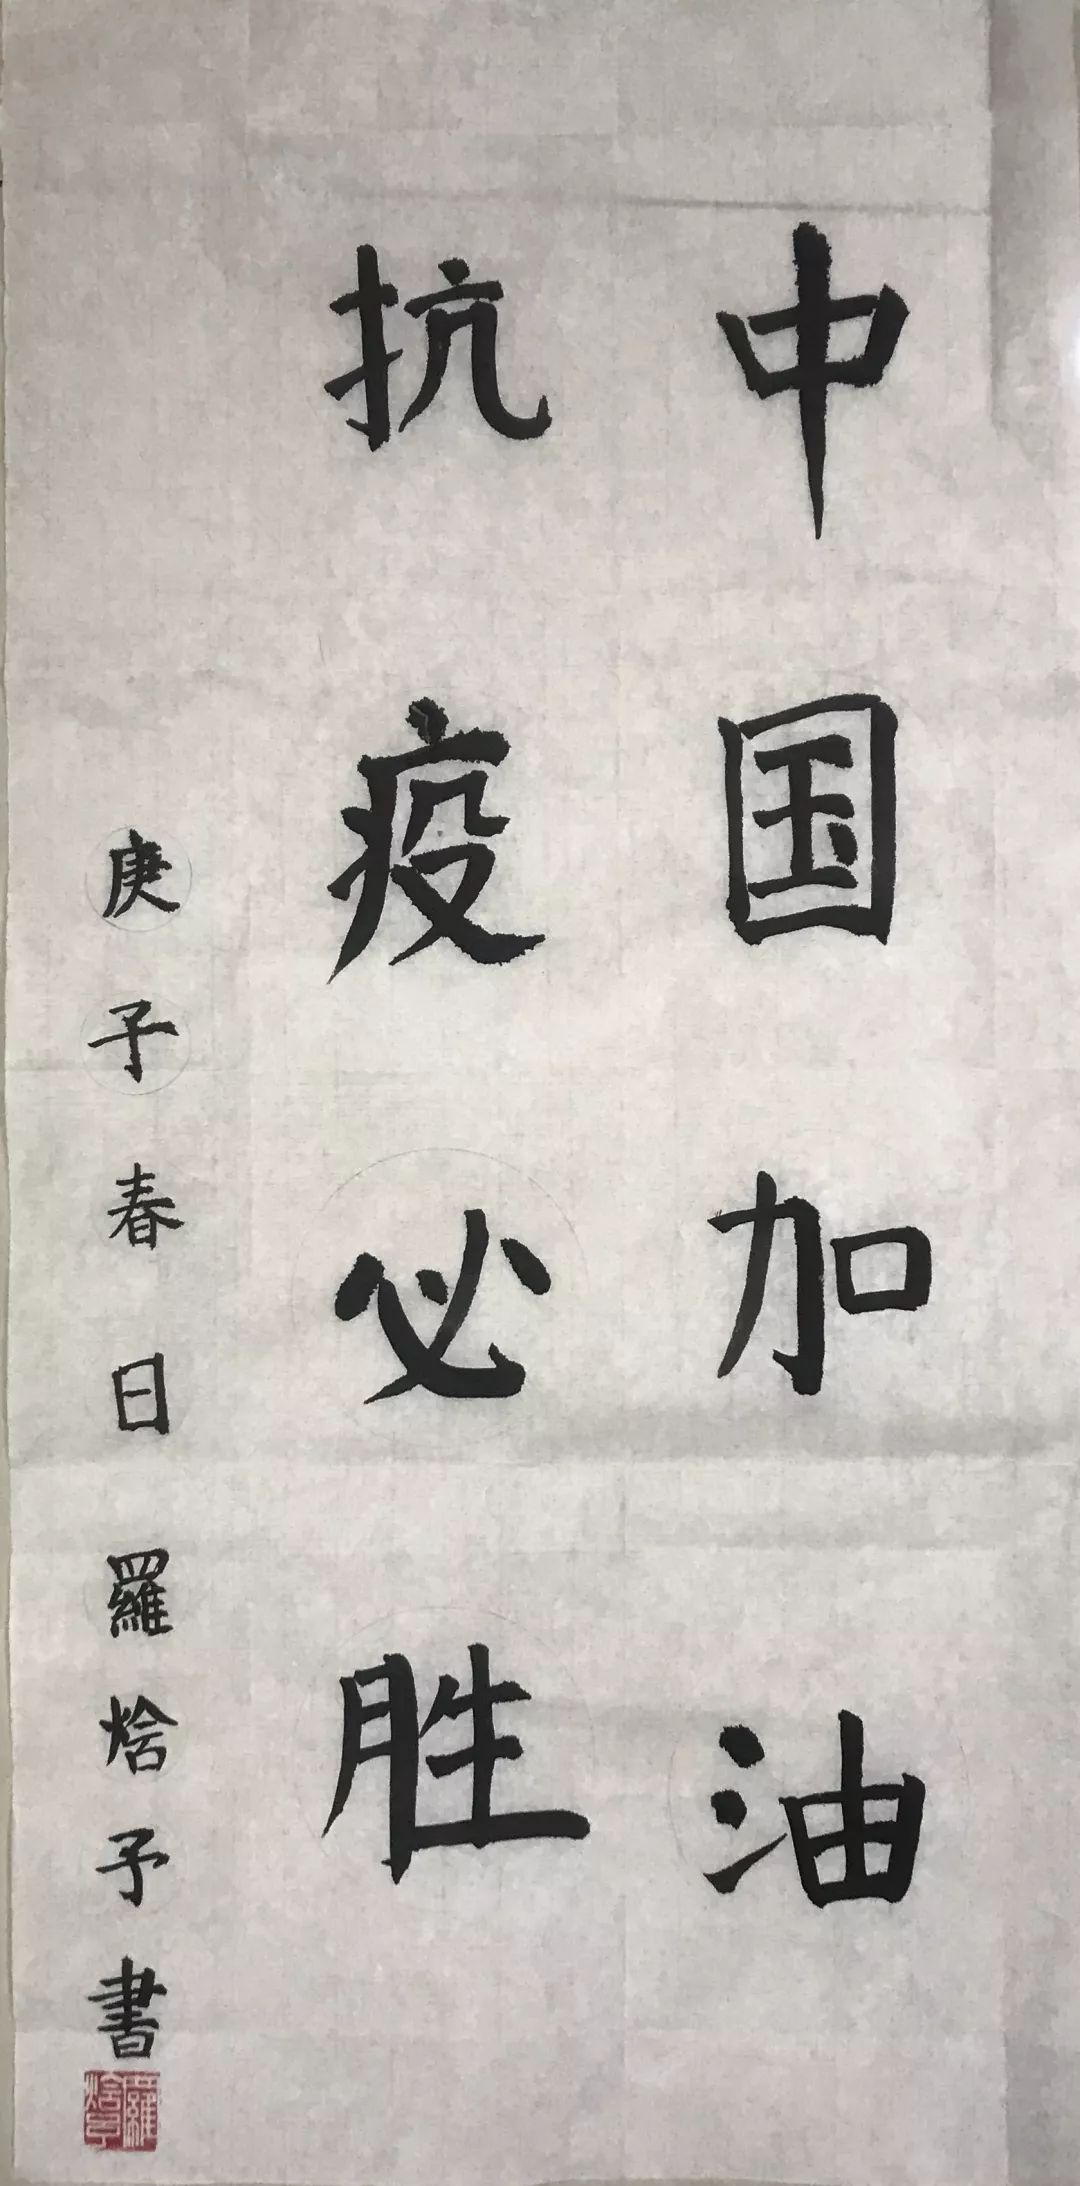 中国加油
抗疫必胜
庚子春日羅烚予書